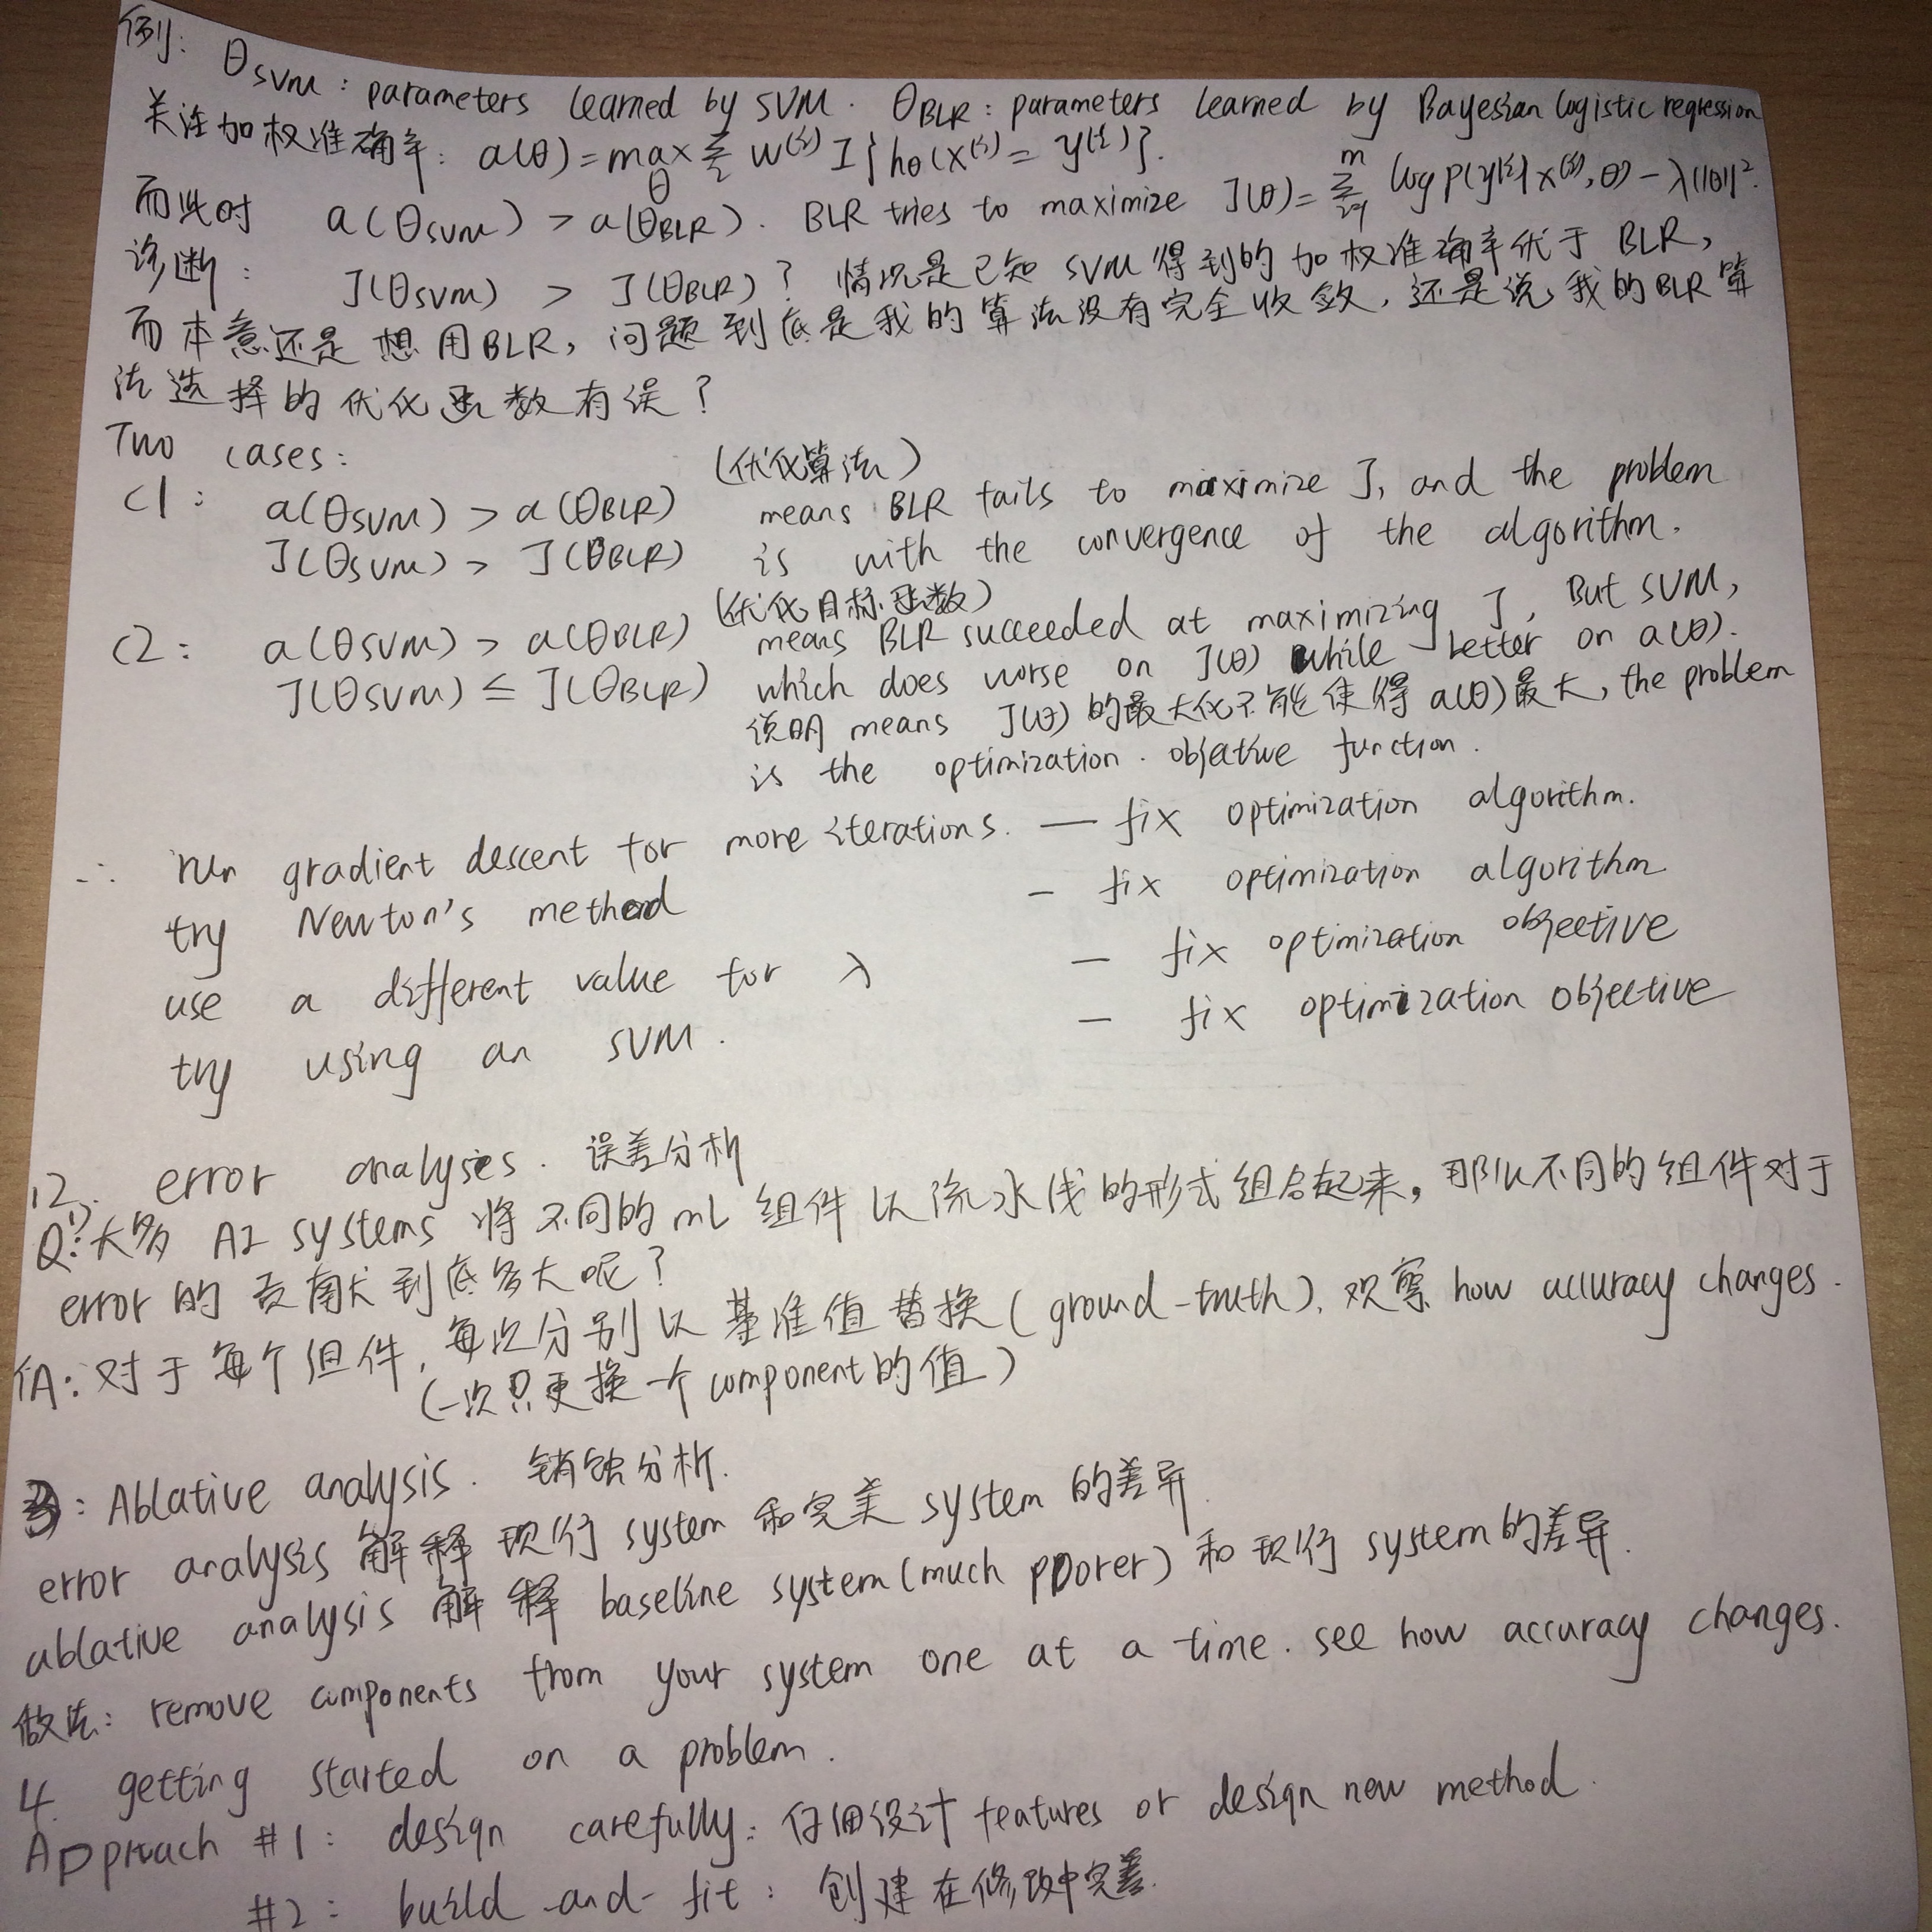 例: θSVM : parameters learned by SVM. θBLR : parameters learned by Bayesian logistic regression
关注加权准确率: a(θ) = max θ Σ i w⁽ⁱ⁾ I{hθ(x⁽ⁱ⁾ = y⁽ⁱ⁾}.
而此时 a(θSVM) > a(θBLR). BLR tries to maximize J(θ) = Σ i=1 m log p(y⁽ⁱ⁾|x⁽ⁱ⁾, θ) - λ||θ||².
诊断: J(θSVM) > J(θBLR)? 情况是已知 SVM得到的加权准确率优于 BLR,
而本意还是想用BLR, 问题到底是我的算法没有完全收敛, 还是说我的BLR算
法选择的优化函数有误?
Two cases:
(优化算法)
C1: a(θSVM) > a(θBLR) means BLR fails to maximize J, and the problem
J(θSVM) > J(θBLR) is with the convergence of the algorithm.
(优化目标函数)
C2: a(θSVM) > a(θBLR) means BLR succeeded at maximizing J, But SVM,
J(θSVM) ≤ J(θBLR) which does worse on J(θ) while better on a(θ).
说明 means J(θ) 的最大化不能使得 a(θ)最大, the problem
is the optimization. objective function.
∴ run gradient descent for more iterations. — fix optimization algorithm.
try Newton's method — fix optimization algorithm
use a different value for λ — fix optimization objective
try using an SVM. — fix optimization objective
12. error analyses. 误差分析
Q: 大多 AI systems 将不同的 ML 组件以流水线的形式组合起来, 那么不同的组件对于
error 的贡献到底多大呢?
A: 对于每个组件, 每次分别以基准值替换 (ground-truth), 观察 how accuracy changes.
(一次只更换一个component的值)
3: Ablative analysis. 销蚀分析.
error analysis 解释现行 system 和完美 system 的差异.
ablative analysis 解释 baseline system (much poorer) 和现行 system的差异.
做法: remove components from your system one at a time. see how accuracy changes.
4. getting started on a problem.
Approach #1: design carefully: 仔细设计 features or design new method.
#2: build-and-fit: 创建在修改中完善.